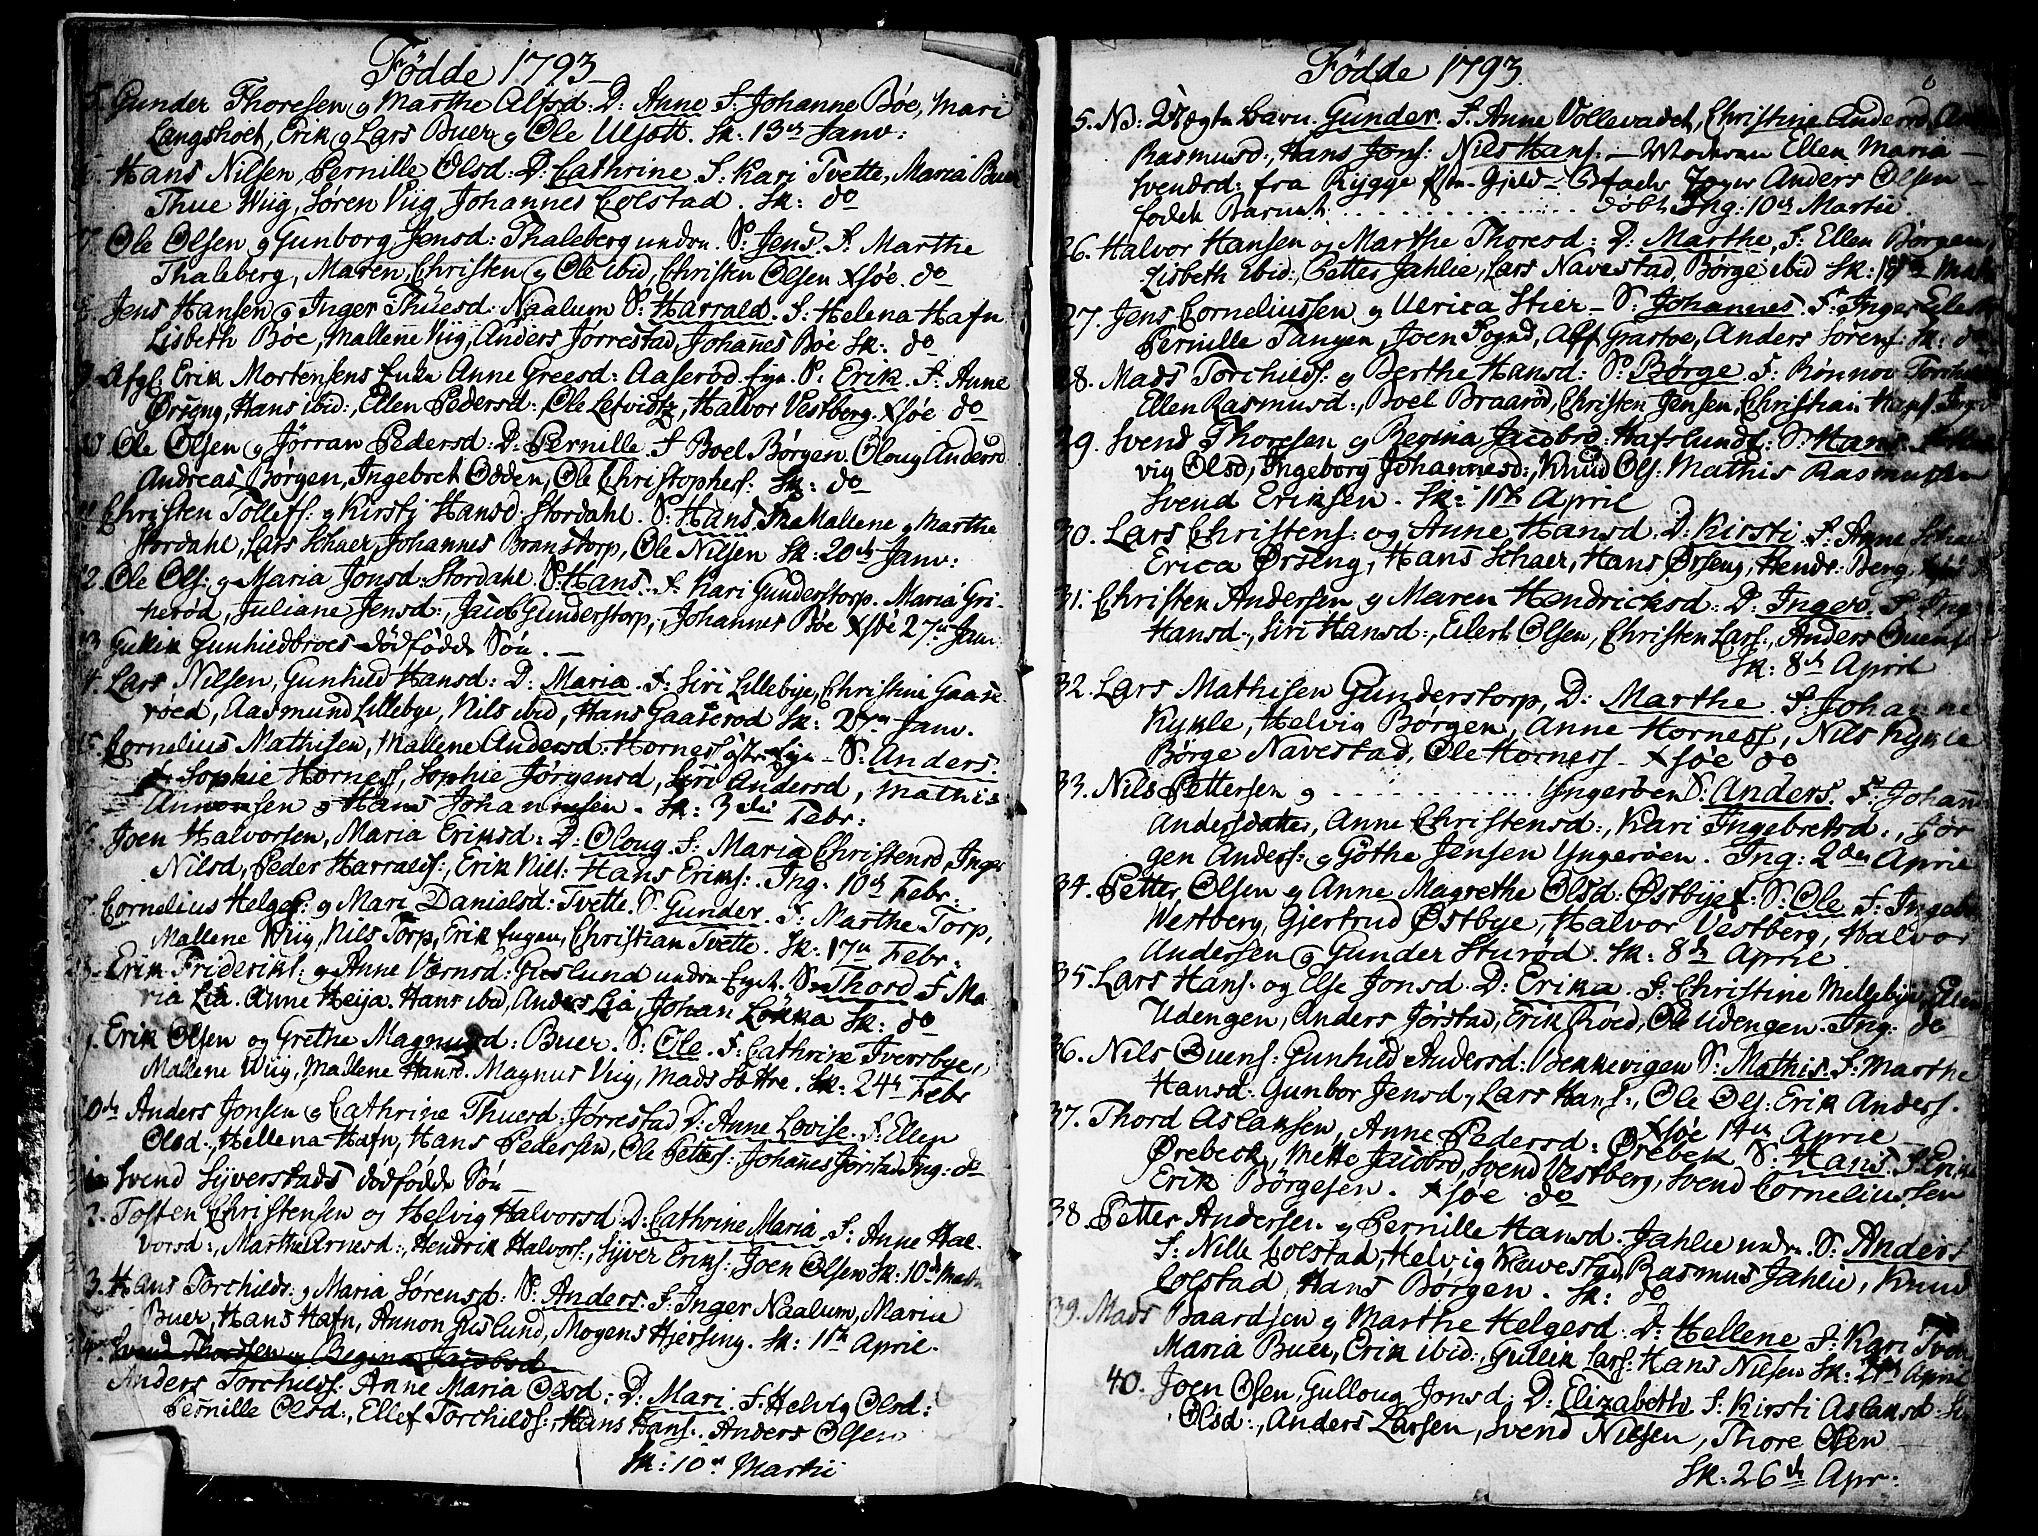 Födde 1793
5. Gunder Thoresen og Marthe Alfsd. D: Anne F: Johanne Böe, Mari
Langsholt, Erik og Lars Buer og Ole Sk: 13de Janv:
Hans Nilsen, Pernille Olsd: D: Cathrine. F: Kari Tvette, Maria Buer
Thue Wiig, Søren Viig, Johannes Colstad. Sk: do
7. Ole Olsen og Gunborg Jensd: Thaleberg undn. S: Jens. F. Marthe
Thaleberg, Maren, Christen og Ole ibid, Christen Olsen xsöe. do
8. Jens Hansen og Inger Thuesd: Naalum S: Harrald. F: Helena Hafn
Lisbeth Böe, Mallene Viig, Anders Jørrestad, Johañes Böe Sk: do
9. Afgl. Erik Mortensens Enke Anne Greesd: Aaserød S: Erik. F. Anne
Ørseng, Hans ibid:, Ellen Pedersd:, Ole Halvor Vestberg. xsöe do
10 Ole Olsen og Jørran Pedersd: D: Pernille. F Boel Börgen. Oloug Andersd
Andreas Börgen, Ingebret Odden, Ole Christophers: Sk: do
11 Christen Tollefs: og Kirsti Hansd. Stordahl. S: Hans. Mallene og Marthe
Stordahl, Lars Schaer, Johannes Branstorp, Ole Nilsen Sk: 20de Janv:
12. Ole Ols: og Maria Jonsd: Stordahl S: Hans. F. Kari Gunderstorp. Maria Gri-
herød, Juliane Jensd:, Jacob Gunderstorp, Johannes Böe xsöe 27de Jan.
13 Gunhildbroes dödfödde Sön. —
14. Lars Nilsen, Gunhild Hansd: D: Maria. F: Siri Lillebye, Christine Gaase-
röed, Aasmund Lillebye, Nils ibid, Hans Gaaserod Sk: 27de Janv.
15. Cornelius Mathisen, Mallene Andersd: Horness östre Eye — S: Anders.
F: Sophie Horness, Sophie Jörgensd, Siri Andersd, Mathis
og Hans Johannesen. Sk: 3die Febr:
16 Joen Halvorsen, Maria Eriksd: D: Oloug. F. Maria Christensd, Inger
Nilsd, Peder Harralds:, Erik Nils: Hans Eriks: Ing. 10de Febr:
17. Cornelius Helges: og Mari Danielsd: Tvette. S: Gunder. F. Marthe Torp,
Mallene Wiig, Nils Torp, Erik Engen, Christian Tvette. Sk: 17de Febr:
18 Erik Frideriks: og Anne Guslund undn S: Thord F Ma
ria Lia. Anne Heija. Hans ibid, Anders Lia, Johan Lökka Sk: do
9. Erik Olsen og Grethe Magnusd: Buer. S: Ole. F: Cathrine Iversbye,
Mallene Wiig, Mallene Hansd. Magnus Viig, Mads Sættre. Sk: 24de Febr
20de Anders Jonsen og Cathrine Thuesd: Jørrestad D: Anne Lovise. F: Ellen
Olsd:, Hellena Hafn, Hans Pedersen, Ole Petters: Johañes Jørstad Ing: do
Svend Syverstads dödfödde Sön
2. Tosten Christensen og Helvig Halvorsd D: Cathrine Maria. F: Anne Hal-
vorsd:, Marthe Arnesd:, Hendrik Halvors:, Syver Eriks: Joen Olsen Sk: 10de Martii
3. Hans Torchilds: og Maria Sørensd: S: Anders. F: Inger Naalum, Marie
Buer, Hans Hafn, Annon Guslund, Mogens Hjersing. Sk: 11te April.
Svend Thorsen og Begina Jacobsd
Anders Torchilds: Anne Maria Olsd: D: Mari. F. Helvig Olsd:
Pernille Olsd:, Ellef Torchilds:, Hans Hans:. Anders Olsen
Sk: 10de Martii
Födde 1793.
25. No: Barn. Gunder. F. Anne Vollevadet, Christine Andersd,
Rasmusd:, Hans Jons: Nils Hans: — Moderen Ellen Maria —
Svendsd: fra Rygge Anders Olsen —
födek Barnet . . . . . . döbt Ing: 10de Martii.
26. Halvor Hansen og Marthe Thoresd: D: Marthe, F: Ellen Börgen,
Lisbeth Ibid:, Petter Jahlie, Lars Navestad, Börge ibid Sk:
27. Jens Corneliussen og Ulrica Stier — S: Johannes. F: Inger
Pernille Tangen, Joen Sognd, Alf Grastoe, Anders Sörens: Sk: do
28. Mads Torchilds: og Berthe Hansd: S: Börge. F: Rönnov
Ellen Rasmusd:, Boel Braaröd, Christen Jensen, Christian Hans:
29. Svend Thoresen og Begina Jacobsd: Hafslunds: S: Hans.
vig Olsd, Ingeborg Johannesd:, Knud Ols: Mathis Rasmusen
Svend Eriksen. Sk: 1ste April
30. Lars Christens: og Anne Hansd: D: Kirsti. F. Anne
Erica Örseng, Hans Schaer, Hans Örseng, Hendr: Berg.
31. Christen Andersen og Maren Hendricksd: D: Inger. F.
Hansd:, Siri Hansd:, Eilert Olsen, Christen Lars:, Anders
Sk: 8de April
32. Lars Mathisen Gunderstorp, D: Marthe. F: Johanne
Kykle, Helvig Börgen, Anne Horness, Nils Kykle
Börge Navestad, Ole Horness — xsöe do
33. Nils Pettersen og . . . . . . Yngeröen S: Anders. F:
Andersdatter, Anne Christensd:, Kari Ingebretsd:, Jör-
gen Anders: og Göthe Jensen Yngeröen. Ing: 2den April
34. Petter Olsen og Anne Magrethe Olsd: Östbye S: Ole F:
Westberg, Gjertrud Östbye, Halvor Vestberg, Halvor
Andersen og Gunder Sturöd. Sk: 8de April
35. Lars Hans: og Else Jonsd: D: Erika. F: Christine Mellebye,
Udengen, Anders Jørstad, Erik Roed, Ole Udengen. Ing: do
36. Nils Ouens: Gunhild Andersd: S: Mathis. F: Marthe
Hansd: Gunbor Jensd, Lars Hans:, Ole Ols: Erik Anders.
xsöe 14de April
37. Thord Aslaksen, Anne Pedersd: Örebek S: Hans. F.
Örebeck, Mette Jacobsd, Svend Vestberg, Svend Corneliussen
Erik Börgesen. xsöe do
38. Petter Andersen og Pernille Hansd: Jahlie undn: S: Anders
F: Nille Colstad, Helvig Navestad, Rasmus Jahlie, Knud
Colstad Hans Börgen. Sk: do
39. Mads Baardsen og Marthe Helgesd: D: Hellene F: Kari
Maria Buer, Erik ibid:, Gullik Lars: Hans Nilsen Sk: 21de April
40. Joen Olsen, Gulloug Jonsd: D: Elizabeth. F: Kirsti Aslaksd
Olsd:, Anders Larsen, Svend Nilsen, Thore Olsen —
Sk: 26de Apr: